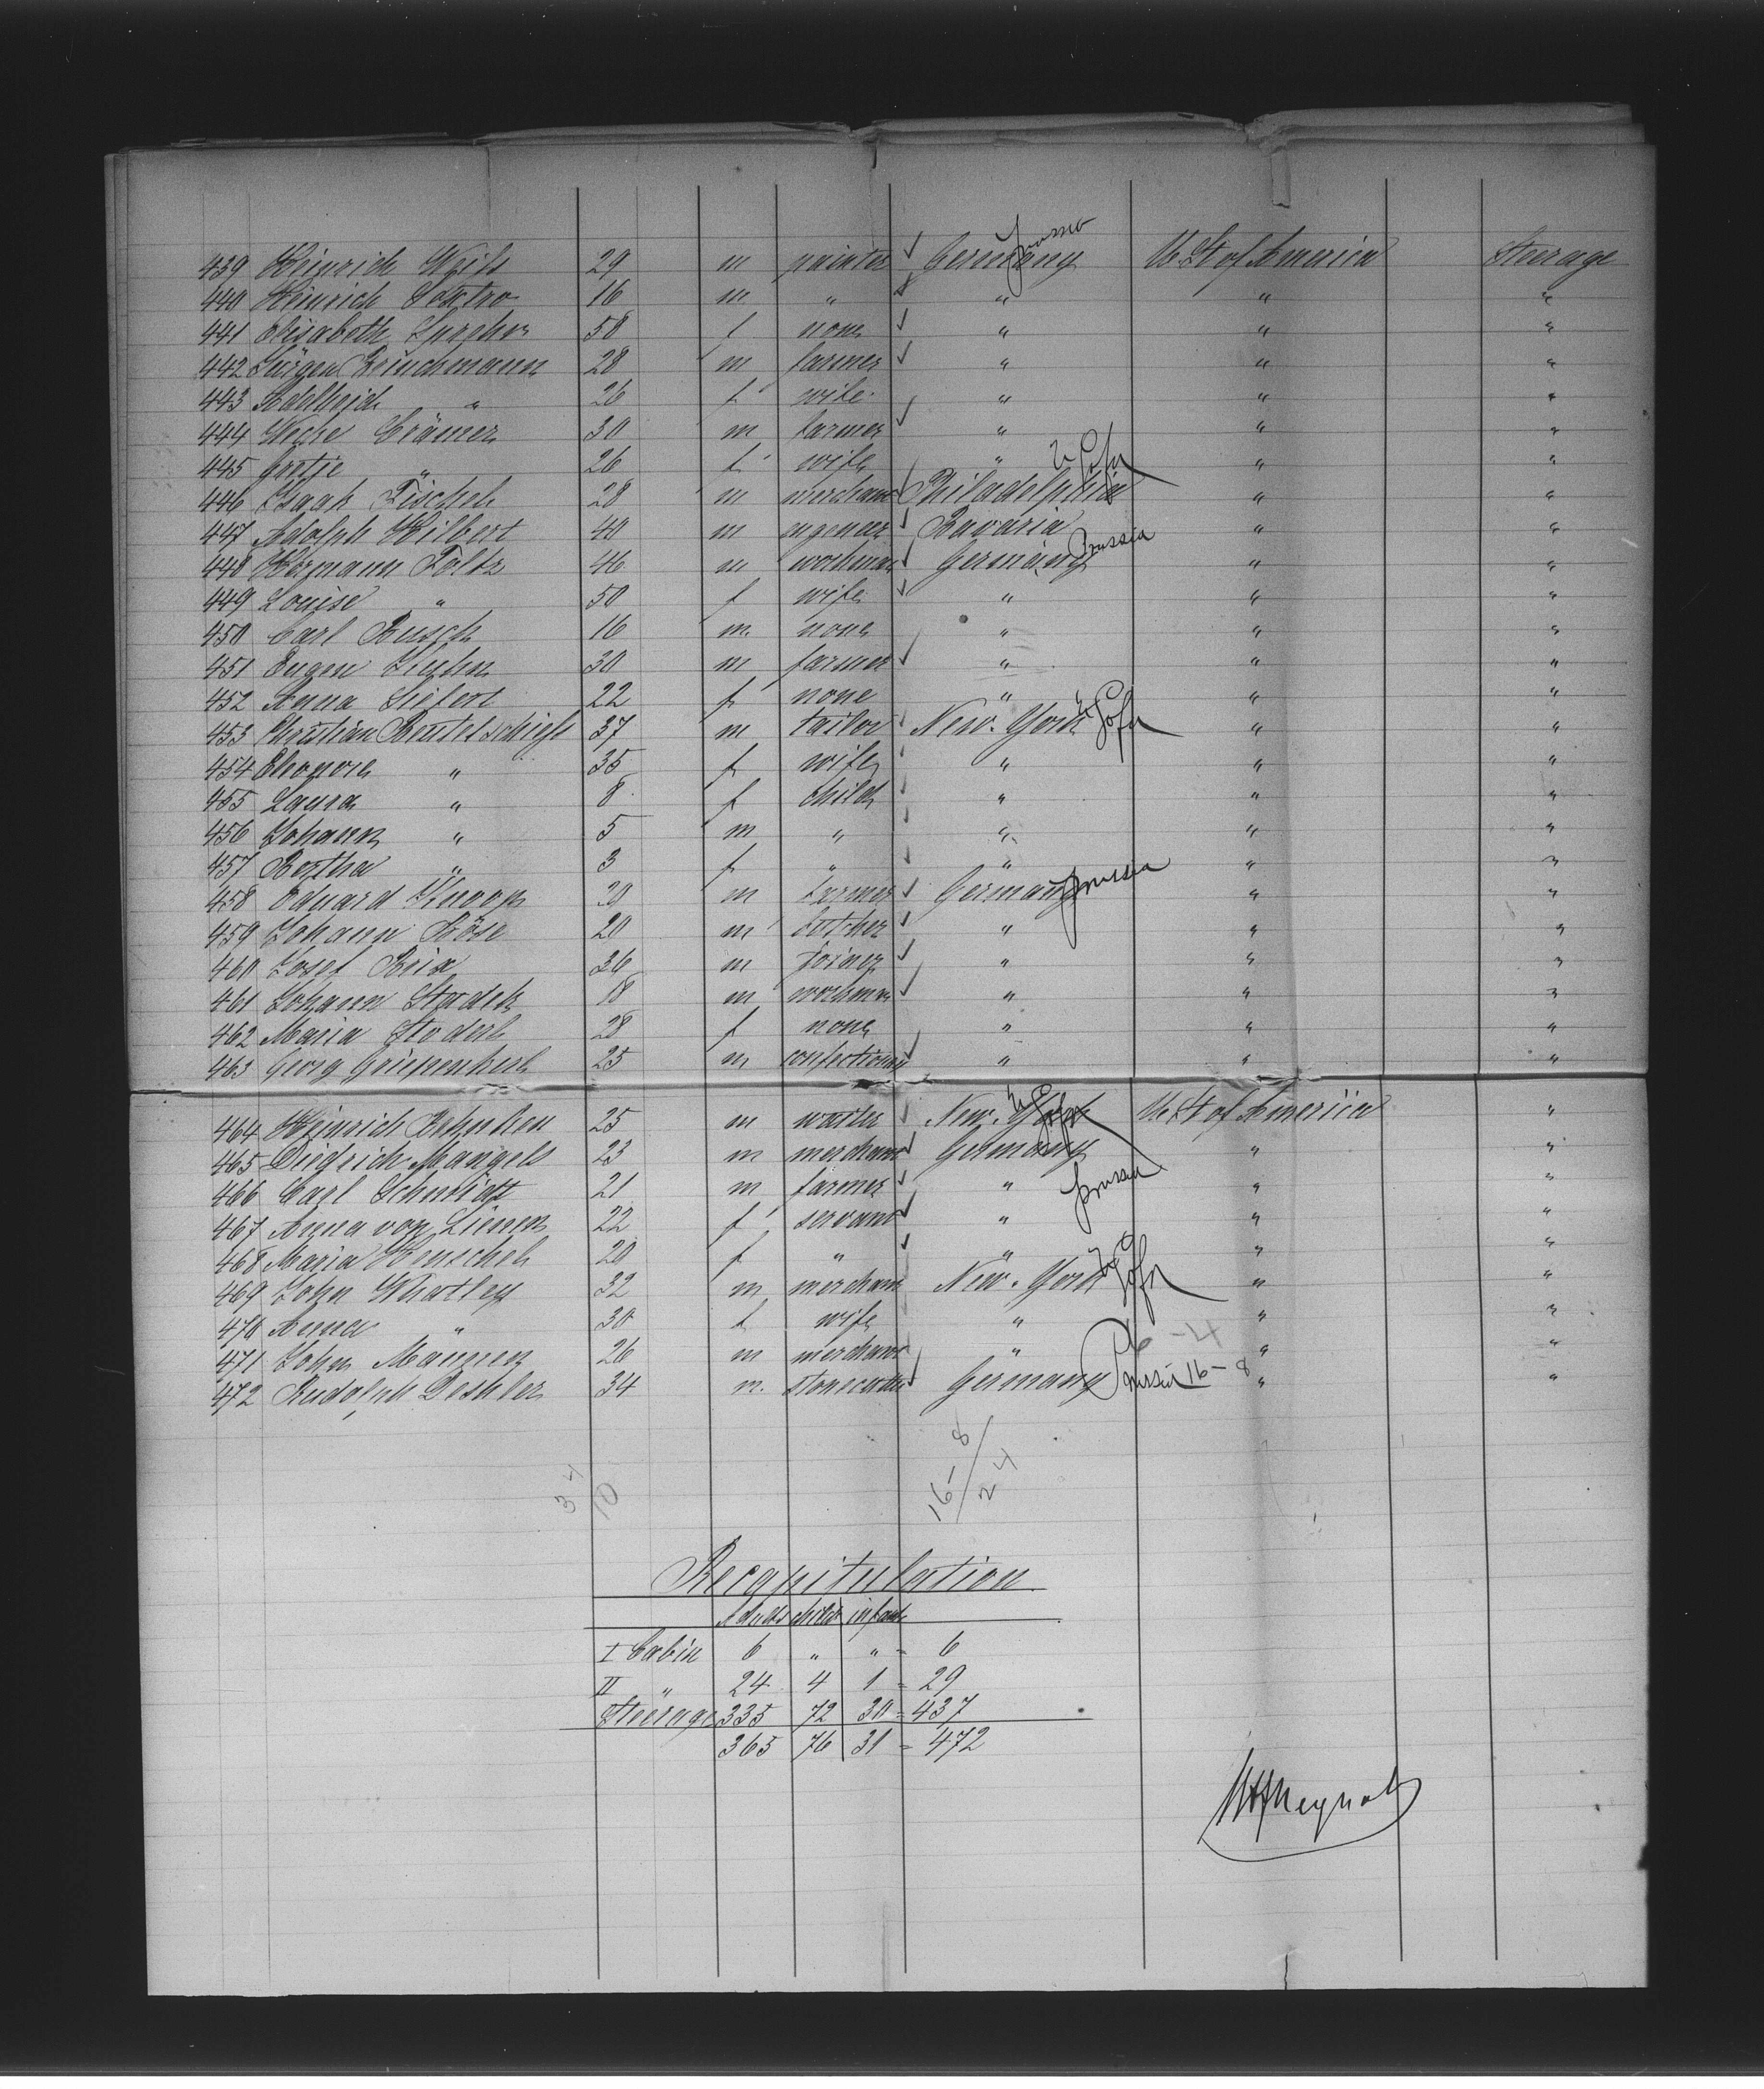 439 Heinrich Weils 29 m painter ✓ Germany Prussia U. St of America Steerage
440 Heinrich Sextro 16 m " ✓ " " "
441 Elisabeth 58 f none ✓ " " "
442 Jürgen Brinckmann 28 m farmer ✓ " " "
443 Adelheid " 26 f wife " " "
444 Krämer 30 m farmer ✓ " " "
445 Gretje " 26 f wife " " "
446 Isaak Fischel 28 m merchant ✓ Philadelphia U S of A " "
447 Adolph Hilbert 40 m engeneer ✓ Bavaria " "
448 Hermann Foltz 46 m workman ✓ Germany Prussia " "
449 Louise " 50 f wife ✓ " " "
450 Carl Busch 16 m. none " " "
451 Eugen 30 m farmer ✓ " " "
452 Anna Siefert 22 f none " " "
453 Christian 37 m tailor New-York U S of A " "
454 Eleonore " 35 f wife " " "
455 Laura " 8 f child " " "
456 Johann " 5 m " " " "
457 Bertha " 3 f " " " "
458 Eduard Knoop 20 m farmer ✓ Germany Prussia " "
459 Johann Köse 20 m butcher ✓ " " "
460 Josef Brix 36 m joiner ✓ " " "
461 Johann 18 m workman ✓ " " "
462 Maria 28 f none " " "
463 Georg Griepenkerl 25 m confectioner ✓ " " "
464 Heinrich Behnken 25 m waiter ✓ New-York U S of A U. St of America "
465 Diedrich Mangels 23 m merchant ✓ Germany " "
466 Carl Schmidt 21 m farmer ✓ " Prussia " "
467 Anna von Lienen 22 f servant ✓ " " "
468 Maria Henschel 20 f " ✓ " " "
469 John Whatley 32 m merchant New-York U S of A " "
470 Anna " 30 f wife " " "
471 John 26 m merchant " 6 - 4 " "
472 Rudolph Deshler 34 m. stonecutter ✓ Germany Prussia 16 - 8 " "
34
10
16 - 8
24
Recapitulation
Adults childr infants
I Cabin 6 " " = 6
II " 24 4 1 = 29
Steerage 335 72 30 = 437
365 76 31 = 472